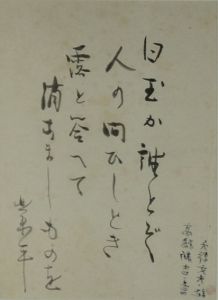 白玉か誰とぞ
人の問ひしとき
露と答へて
消なましものを
業平